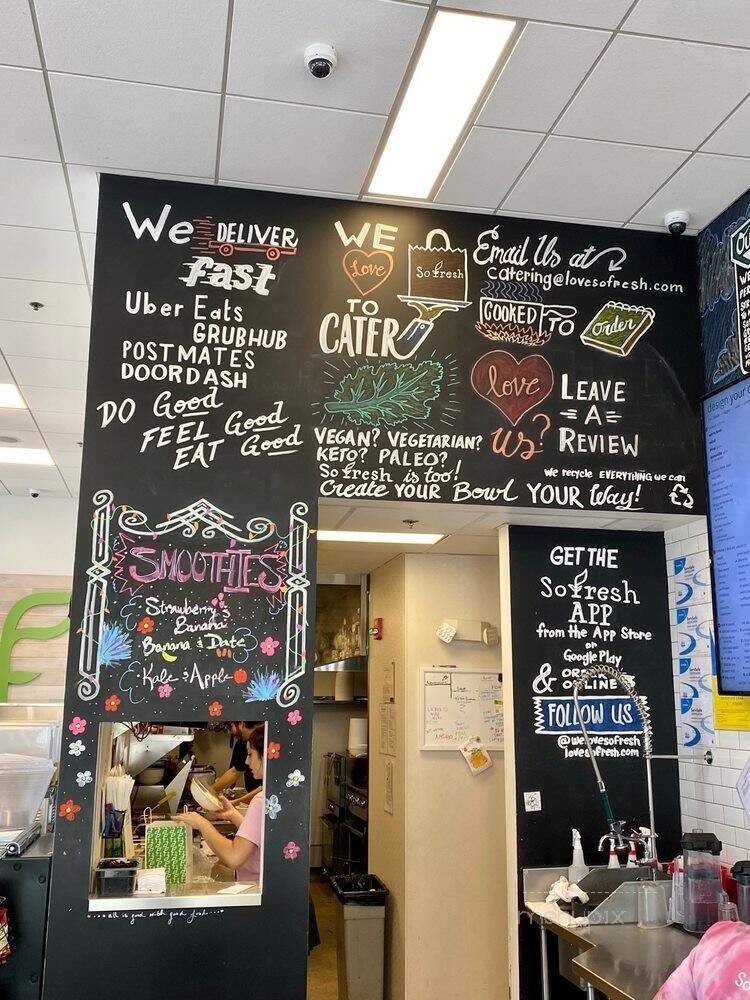 We DELIVER
fast
Uber Eats
GRUBHUB
POSTMATES
DOORDASH
DO Good
FEEL Good
EAT Good
WE
Love
TO
CATER
Sofresh
Email Us at
catering@lovesofresh.com
COOKED TO
Order
love
us?
LEAVE
A
REVIEW
VEGAN? VEGETARIAN?
KETO? PALEO?
Sofresh is too!
Create YOUR Bowl YOUR Way!
We recycle EVERYTHING we can
SMOOTHIES
Strawberry &
Banana
Banana & Date
Kale & Apple
all is good with good food
GET THE
Sofresh
APP
from the App Store
or
Google Play
&
ONLINE
FOLLOW US
@welovesofresh
lovesofresh.com
design your